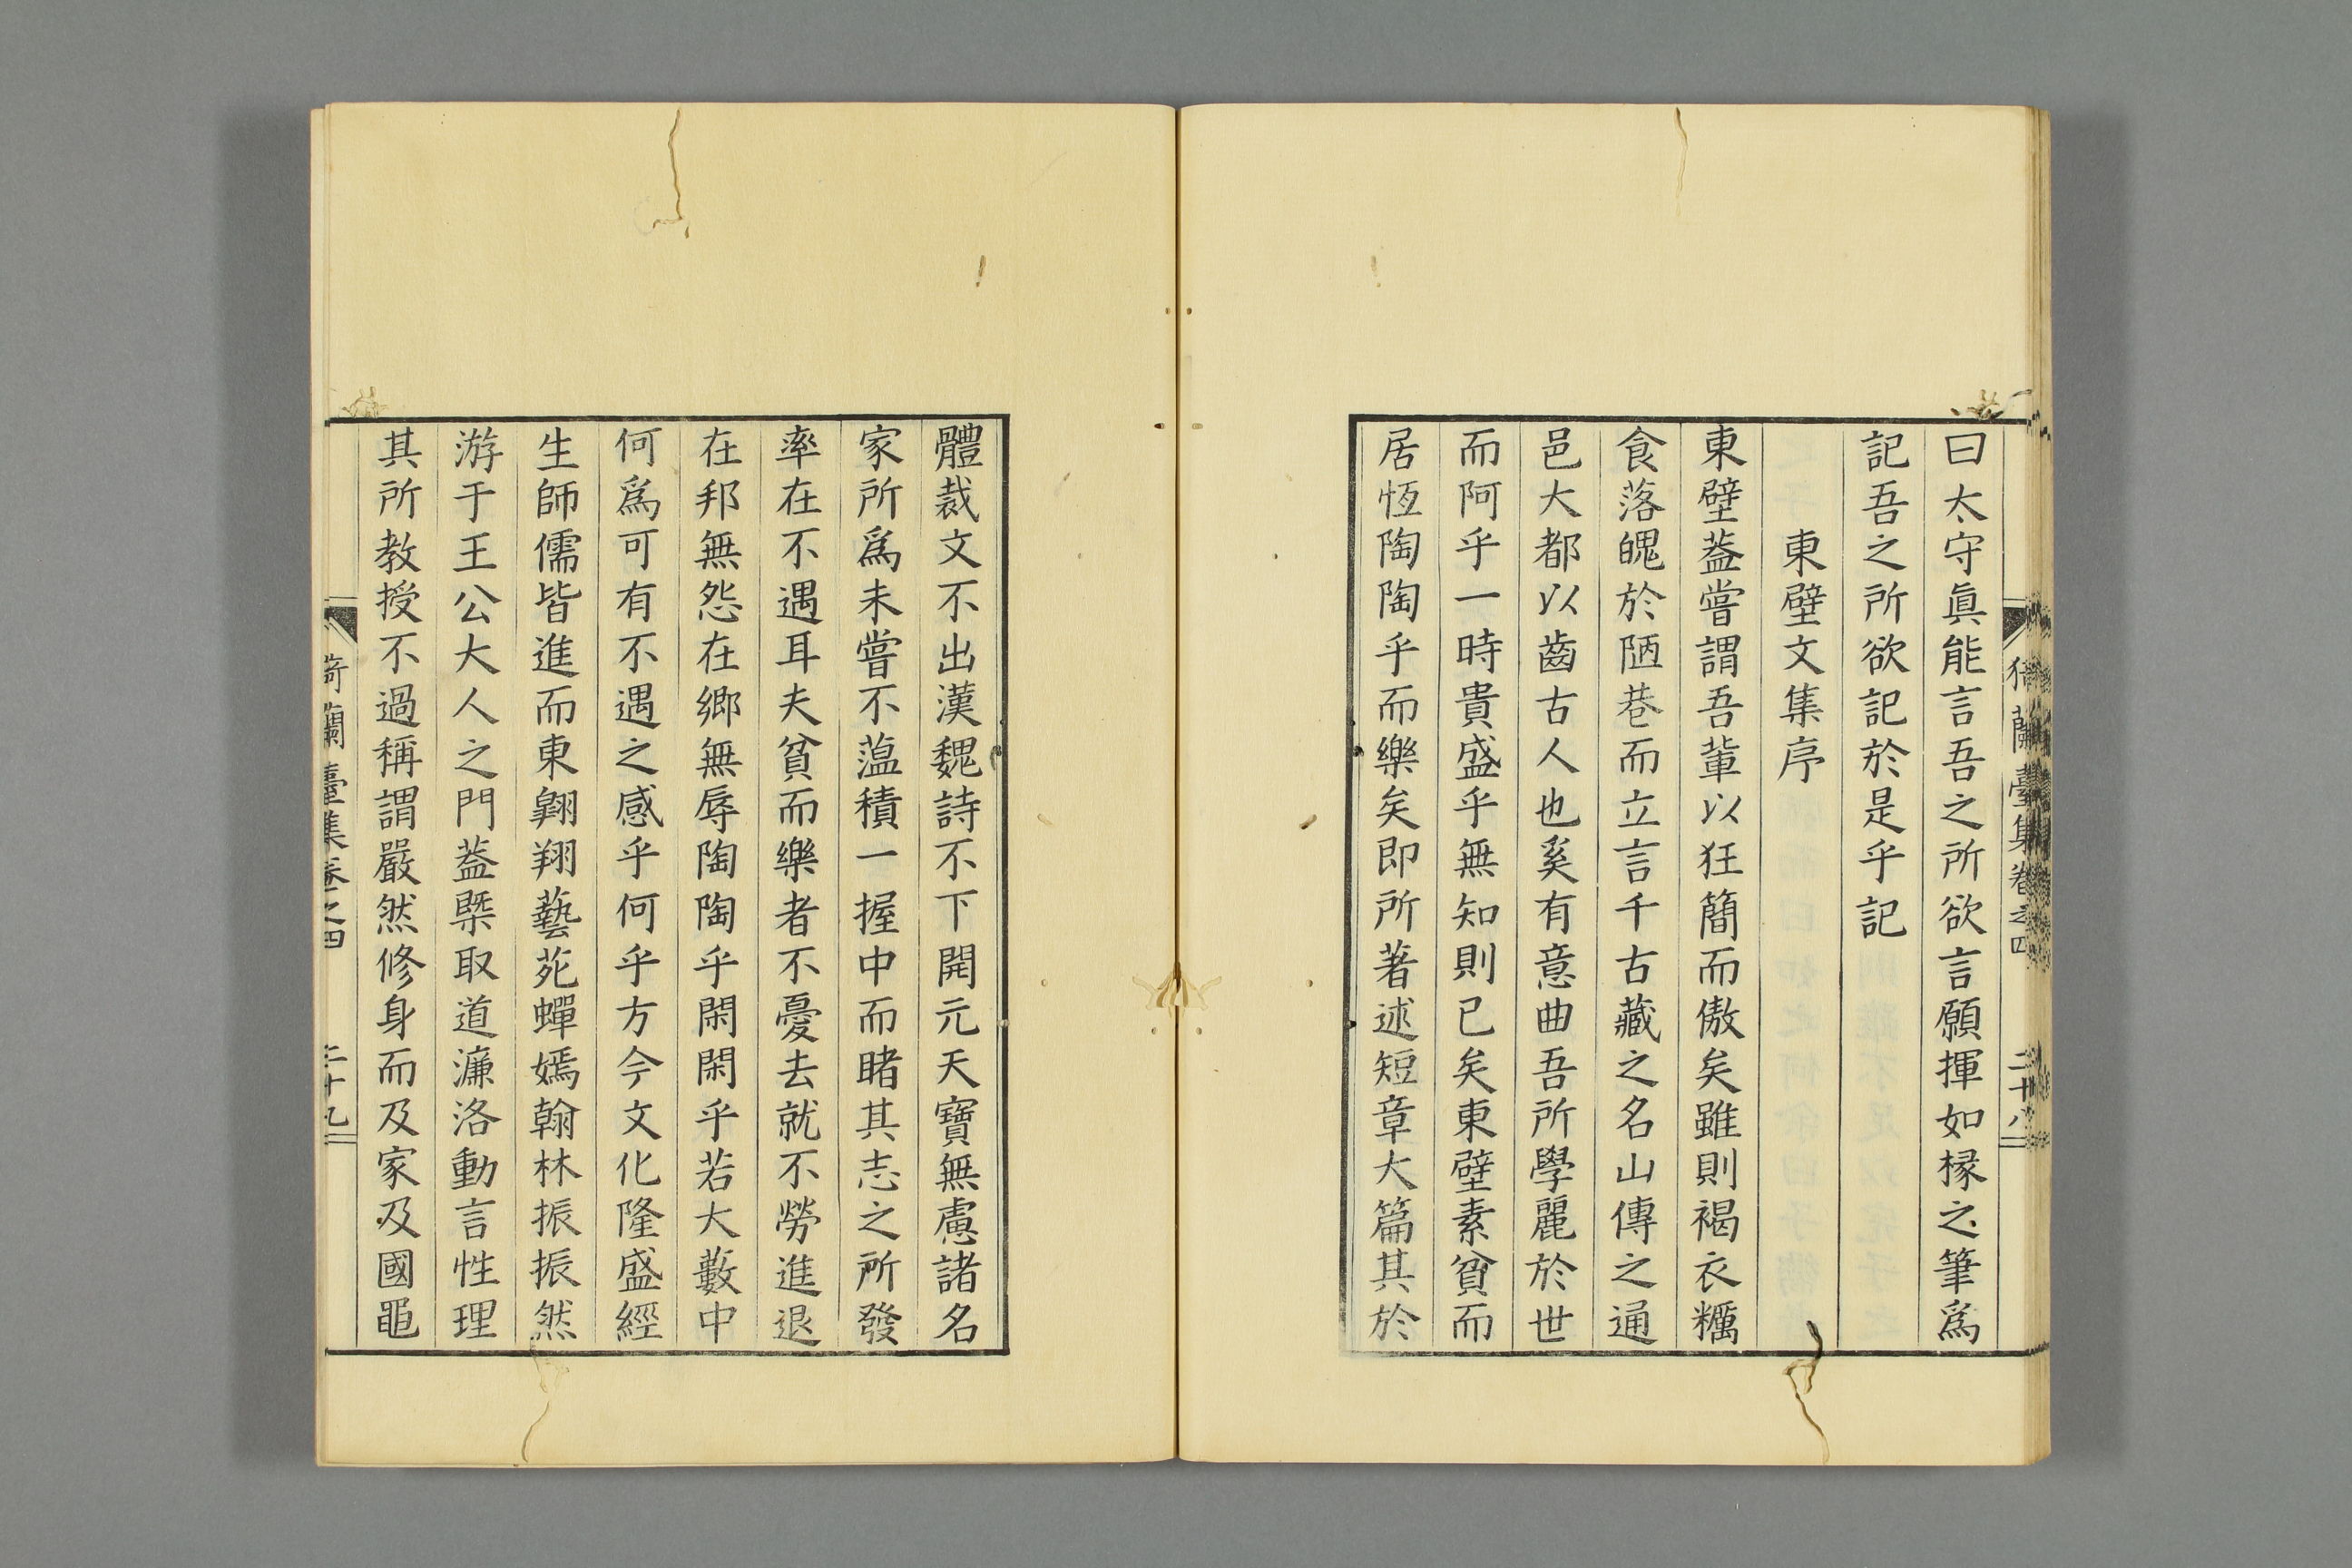 曰太守眞能言吾之所欲言願揮如椽之筆爲
記吾之所欲記於是乎記
東壁文集序
東壁葢嘗謂吾軰以狂簡而傲矣雖則褐衣糲
食落魄於陋巷而立言千古藏之名山傳之通
邑大都以齒古人也奚有意曲吾所學麗於世
而阿乎一時貴盛乎無知則已矣東壁素貧而
居恆陶陶乎而樂矣即所著述短章大篇其於
體裁文不出漢魏詩不下開元天寶無慮諸名
家所爲未嘗不薀積一握中而睹其志之所發
率在不遇耳夫貧而樂者不憂去就不勞進退
在邦無怨在鄉無辱陶陶乎閑閑乎若大藪中
何爲可有不遇之感乎何乎方今文化隆盛經
生師儒皆進而東翺翔藝苑蟬嫣翰林振振然
游于王公大人之門葢槩取道濂洛動言性理
其所教授不過稱謂嚴然修身而及家及國黽
蘭臺集卷之四 二十八
猗蘭臺集卷之四 二十九